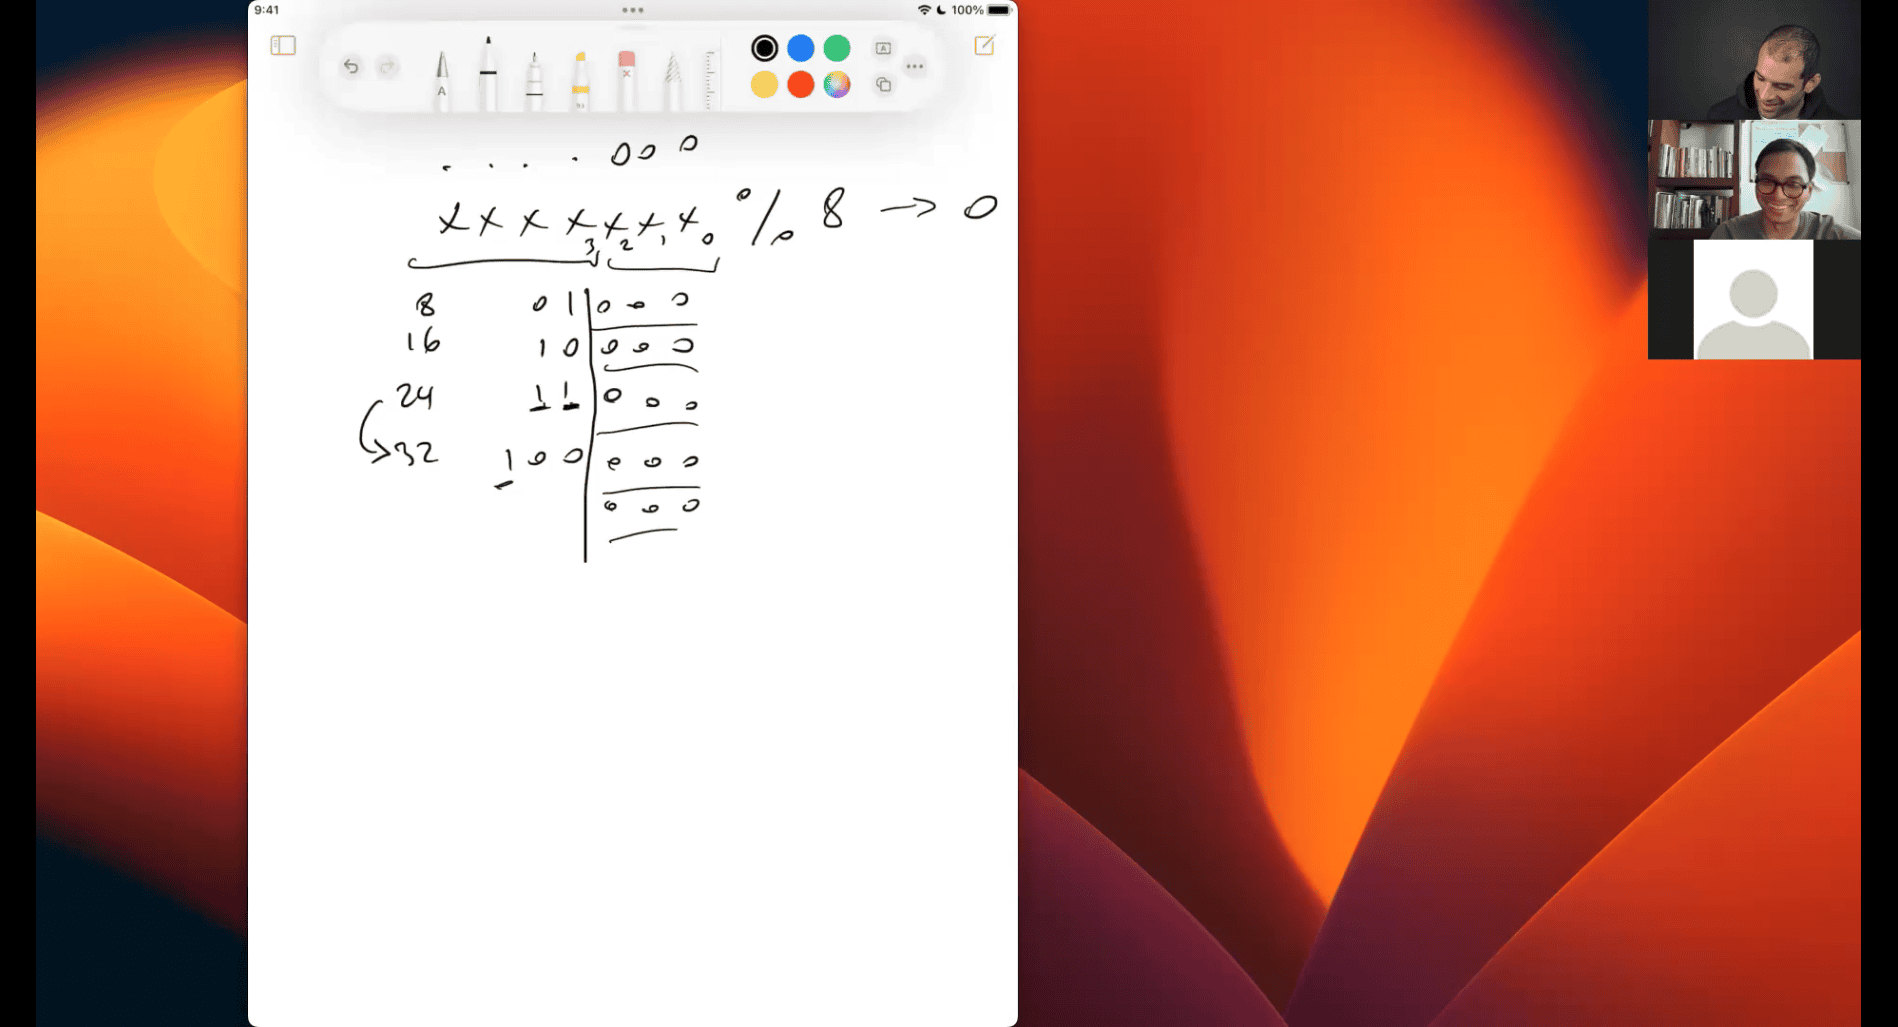 9:41 100%
A
A
. . . . 0 0 0
x x x x x x x % 8 → 0
3 2 1 0
8 0 1 0 0 0
16 1 0 0 0 0
24 1 1 0 0 0
32 1 0 0 0 0 0
0 0 0